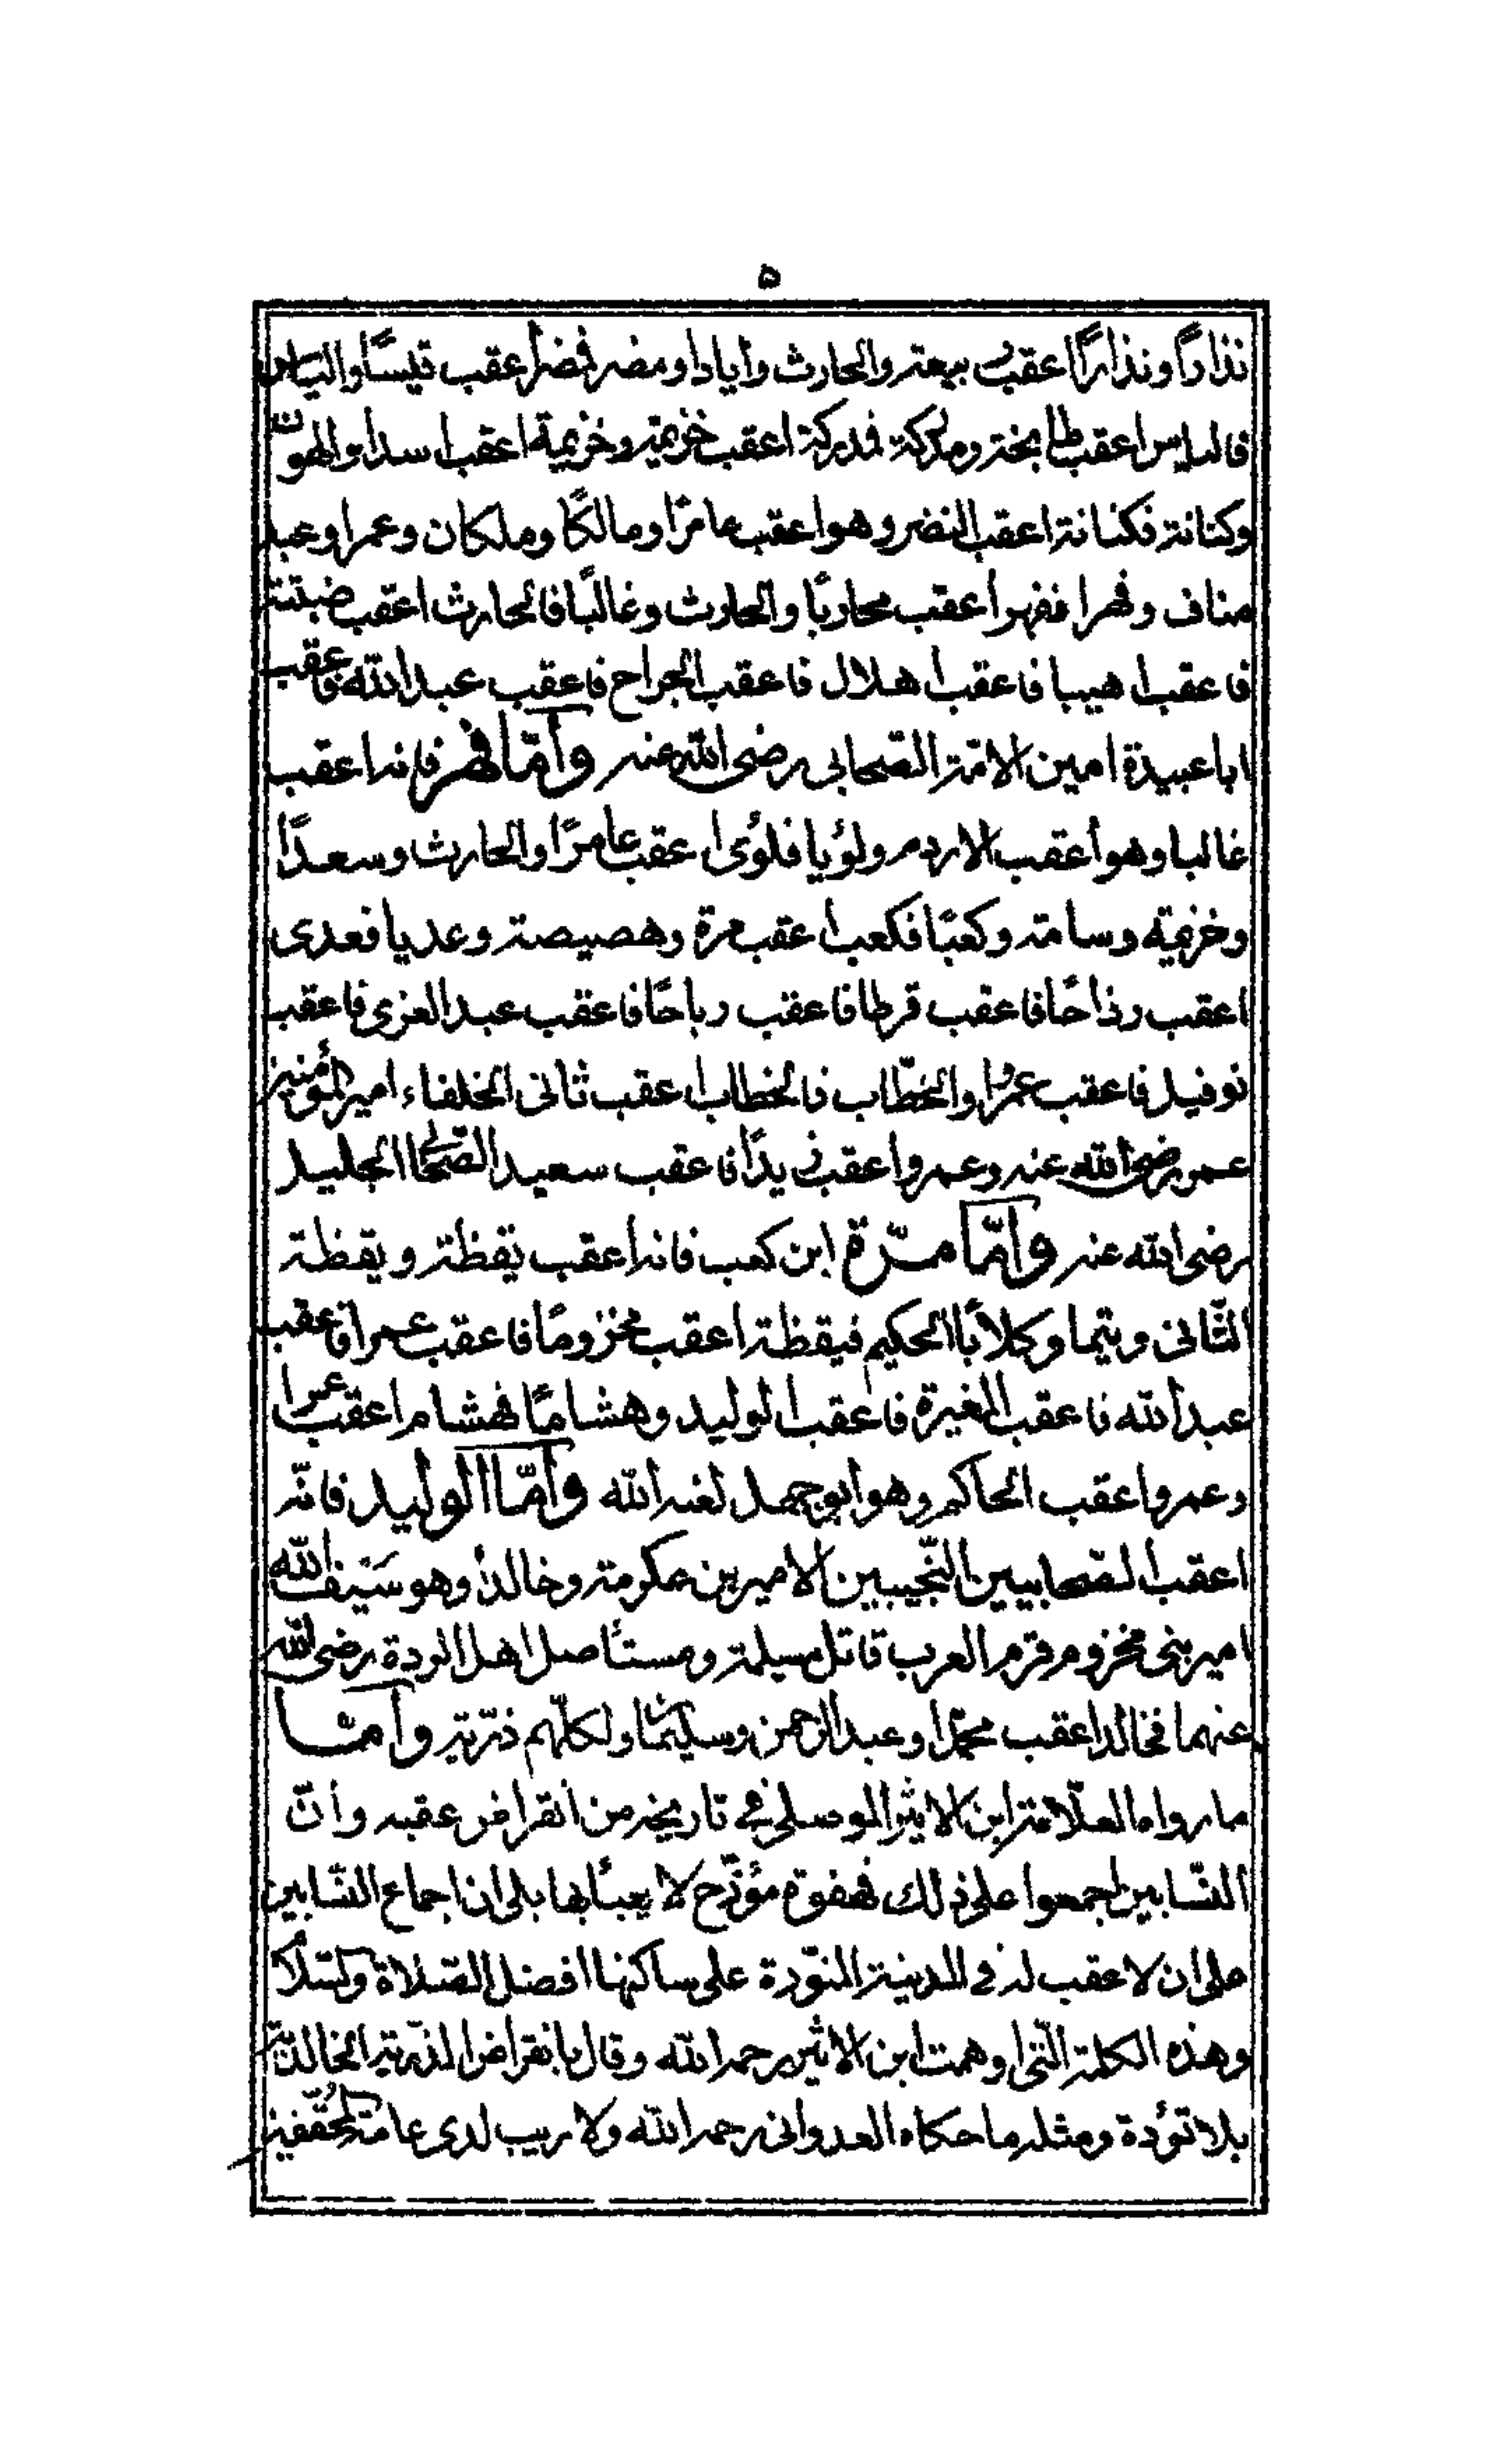 ٥
نذارًا ونذارًا اعقب ربيعة والحارث وأيادا ومضر فمضر أعقب قيسًا والياس
فالياس اعقب طابخة ومدركة فمدركة اعقب خزيمة وخزيمة اعقب اسدا والهون
وكنانة فكنانة اعقب النضر وهو اعقب عامرًا ومالكًا وملكان وعمرا وعبد
مناف وفهرا ففهر أعقب محاربًا والحارث وغالبًا فالحارث اعقب ضبته
فاعقب اهيبا فاعقب اهلال فاعقب الجراح فاعقب عبدالله فاعقب
اباعبيدة امين الامة الصحابى رضى الله عنه وأمّا فهر فانه اعقب
غالبا وهو أعقب الاردم ولؤيا فلؤى اعقب عامرًا والحارث وسعدًا
وخزيمة وسامة وكعبًا فكعب اعقب مرة وهصيصة وعديا فعدى
اعقب رذاحًا فاعقب قرطا فاعقب رباحًا فاعقب عبدالعزى فاعقب
نوفيل فاعقب عمرا والخطّاب فالخطاب اعقب ثانى الخلفاء امير المؤمنين
عمر رضى الله عنه وعمرو اعقب زيدًا فاعقب سعيد الصّحابى الجليل
رضى الله عنه وامّا مرّة ابن كعب فانه اعقب يقظة ويقظة
الثّانى وتيما وكلابًا الحكيم فيقظة اعقب مخزومًا فاعقب عمرا فاعقب
عبدالله فاعقب المغيرة فاعقب الوليد وهشامًا فهشام اعقب عمرا
وعمرو اعقب الحاكم وهو ابوجهل لعنه الله وأمّا الوليد فانّه
اعقب الصّحابيين النّجيبين الاميرين عكرمة وخالدا وهو سَيف الله
امير بنى مخزوم قرم العرب قاتل مسيلمة ومستأصل اهل الردة رضى الله
عنهما فخالد اعقب محمّدا وعبدالرحمن وسليمانًا ولكلّهم ذرّية وأمّا
مارواه العلّامة ابن الاثير الموصلى فى تاريخه من انقراض عقبه وأنّ
النّسّابين اجمعوا على ذلك فهفوة مؤرّخ لا يعبأ بها بلى ان اجماع النسّابين
على ان لا عقب له فى المدينة المنوّرة على ساكنها افضل الصّلاة والسّلام
وهذه الكلمة الّتى اوهمت ابن الاثير رحمه الله وقال بانقراض الذّرية الخالديّة
بلا تؤدة ومثله ما حكاه العدوانى رحمه الله ولا ريب لدى عامة المحققين